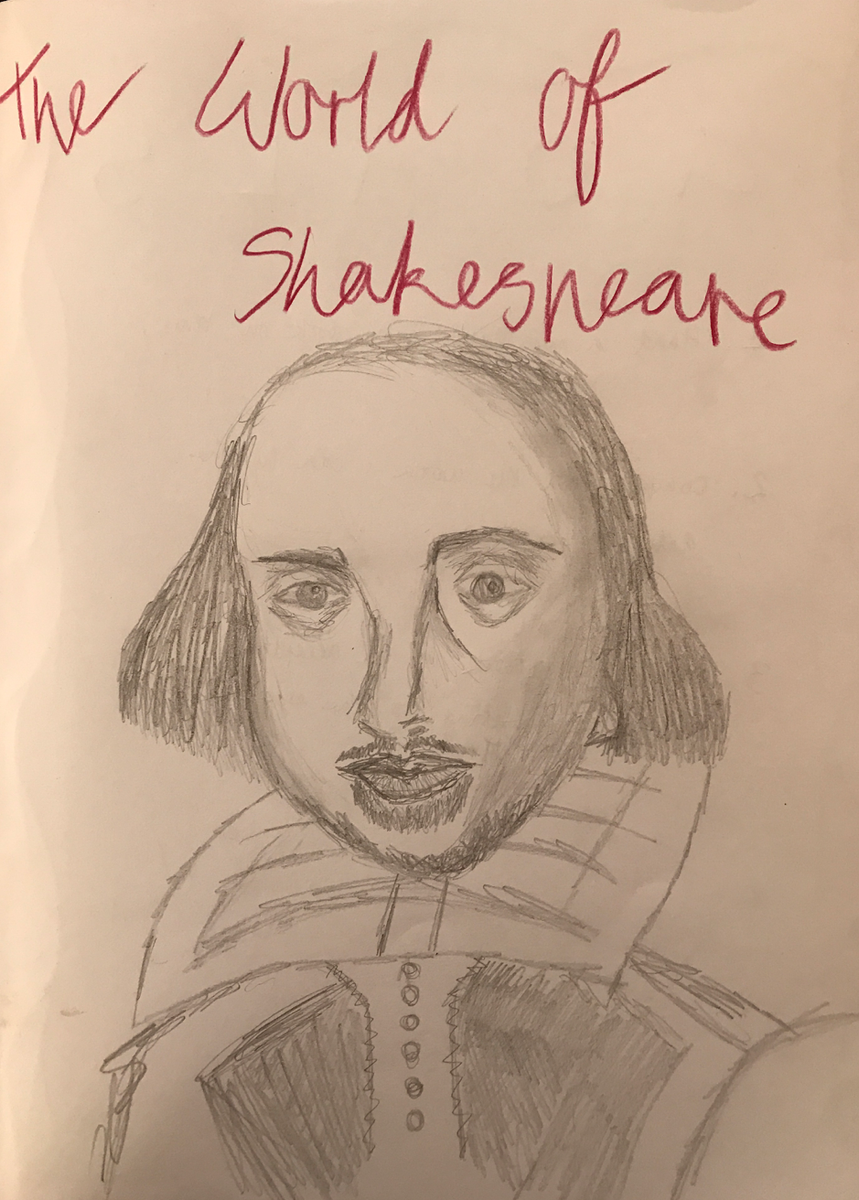 The World of
Shakespeare